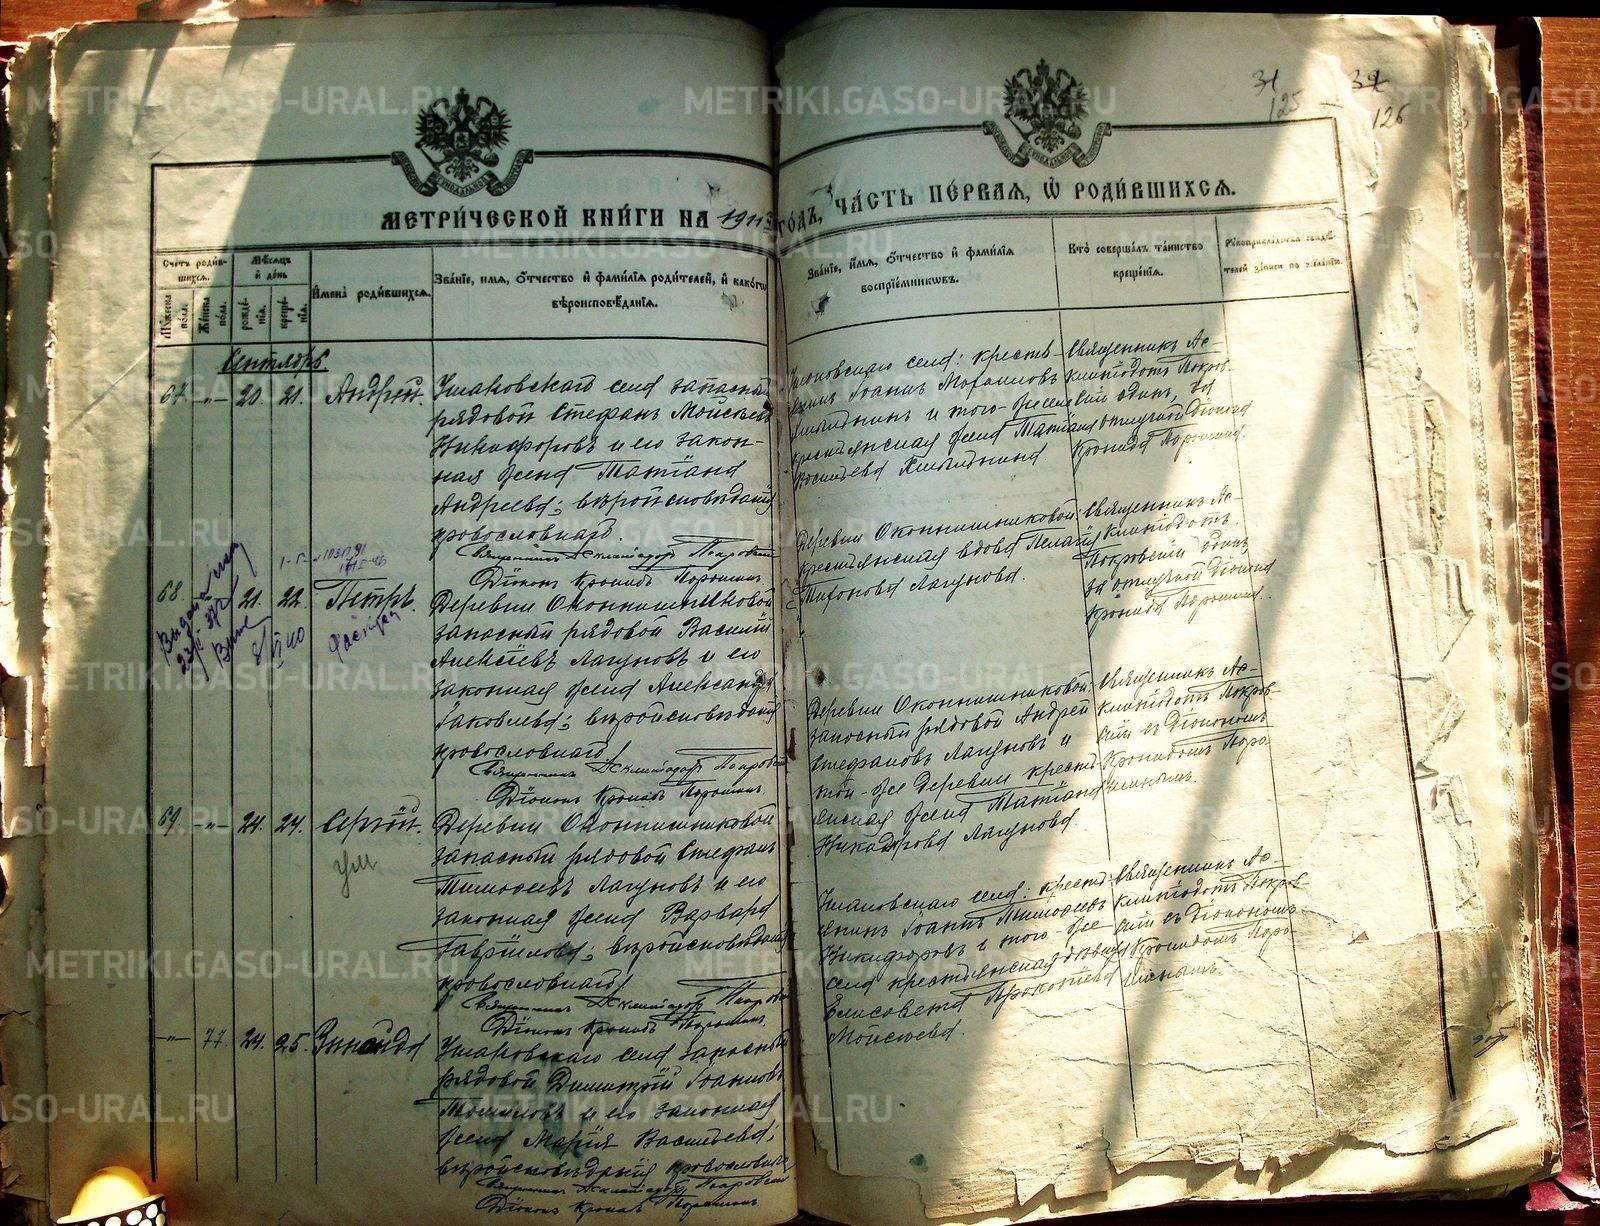 31
125
32
126
МЕТРИ́ЧЕСКОЙ КНИ́ГИ НА 1911 ГО́ДЪ, ЧА́СТЬ ПЕ́РВАЯ, Ѡ҆ РОДИ́ВШИХСѦ.
Сче́тъ роди́в-
шихсѧ.
Му́жеска по́ла.
Же́нска по́ла.
Мѣ́сѧцъ и҆ де́нь
рожде́-
нїѧ.
креще́-
нїѧ.
И҆мена̀ роди́вшихсѧ.
Зва́нїе, и҆́мѧ, ѻ҆́тчество и҆ фами́лїѧ роди́телей, и҆ како́гѡ
вѣроисповѣ́данїѧ.
Зва́нїе, и҆́мѧ, ѻ҆́тчество и҆ фами́лїѧ
воспрїе́мниковъ.
Кто̀ соверша́лъ та́инство
креще́нїѧ.
Рꙋкоприкла́дство свидѣ́-
телей за́писи по жела́нїю.
Сентябрь
67. -"- 20. 21. Андрей.
Ушаковскаго села запасный
рядовой Стефанъ Моисеевъ
Никифоровъ и его закон-
ная жена Татіана
Андреева; вѣроисповѣданія
православнаго.
Священникъ Асклипіодотъ Покровскій
Діаконъ Кронидъ Порошинъ.
Ушаковскаго села: кресть-
янинъ Іоаннъ
и того-же села
крестьянская жена Татіана
Васильева
Священникъ Ас-
клипіодотъ Покров-
скій одинъ, за
отлучкой діакона
Кронида Порошина.
68. 21. 22. Петръ.
Деревни Оконнишниковой
запасный рядовой Василій
Алексіевъ Лагуновъ и его
законная жена Александра
Іаковлева; вѣроисповѣданія
православнаго.
Священникъ Асклипіодотъ Покровскій
Діаконъ Кронидъ Порошинъ.
Деревни Оконнишниковой
крестьянская вдова Пелагія
Тихонова Лагунова.
Священникъ Ас-
клипіодотъ
Покровскій одинъ
за отлучкой діакона
Кронида Порошина.
69. -"- 24. 24. Сергій.
ум
Деревни Оконнишниковой
запасный рядовой Стефанъ
Тимофеевъ Лагуновъ и его
законная жена Варвара
Гавріилова; вѣроисповѣданія
православнаго.
Священникъ Асклипіодотъ Покровскій
Діаконъ Кронидъ Порошинъ.
Деревни Оконнишниковой:
запасный рядовой Андрей
Стефановъ Лагуновъ и
той-же деревни кресть-
янская жена Татіана
Никандрова Лагунова
Священникъ Ас-
клипіодотъ Покров-
скій съ діакономъ
Кронидомъ Поро-
шинымъ.
-"- 77. 24. 25. Зинаида
Ушаковскаго села запасный
рядовой Димитрій Іоанновъ
и его законная
жена Марія Васильева;
вѣроисповѣданія православнаго
Священникъ Асклипіодотъ Покровскій
Діаконъ Кронидъ Порошинъ.
Ушаковскаго села: кресть-
янинъ Іоаннъ Тимофеевъ
Никифоровъ и того-же
села крестьянская дѣвица
Елисавета Прокопіева
Моисеева.
Священникъ Ас-
клипіодотъ Покров-
скій съ діакономъ
Кронидомъ Поро-
шинымъ.
METRIKI.GASO-URAL.RU